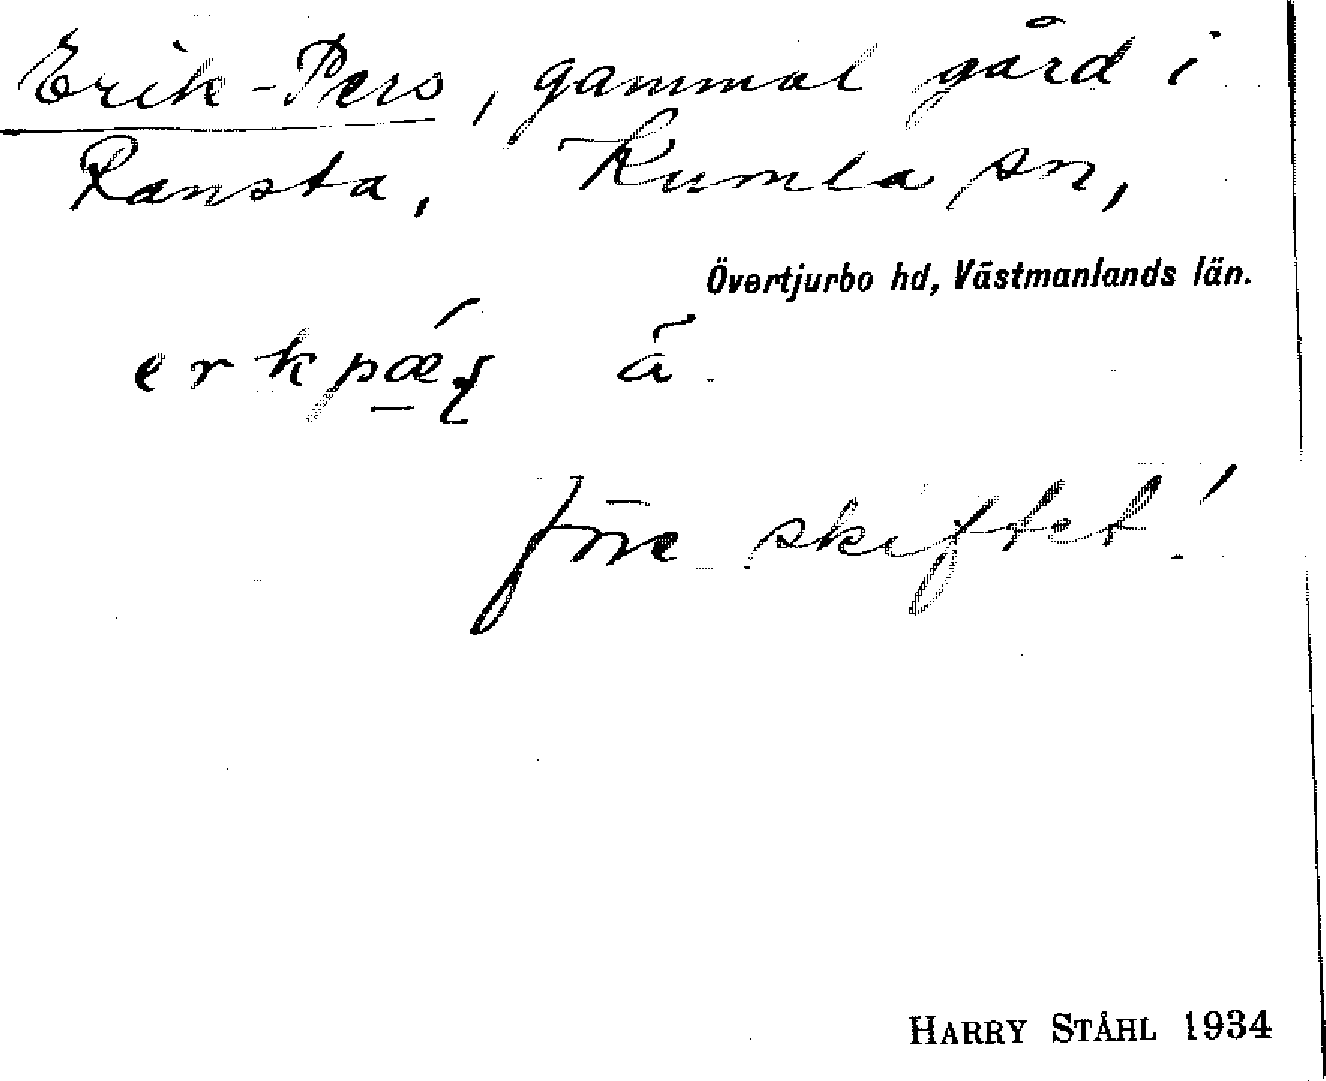 Erik-Pers, gammal gård i
Ransta, Kumla sn,
Övertjurbo hd, Västmanlands län.
ã
före skiftet!
HARRY STÅHL 1934